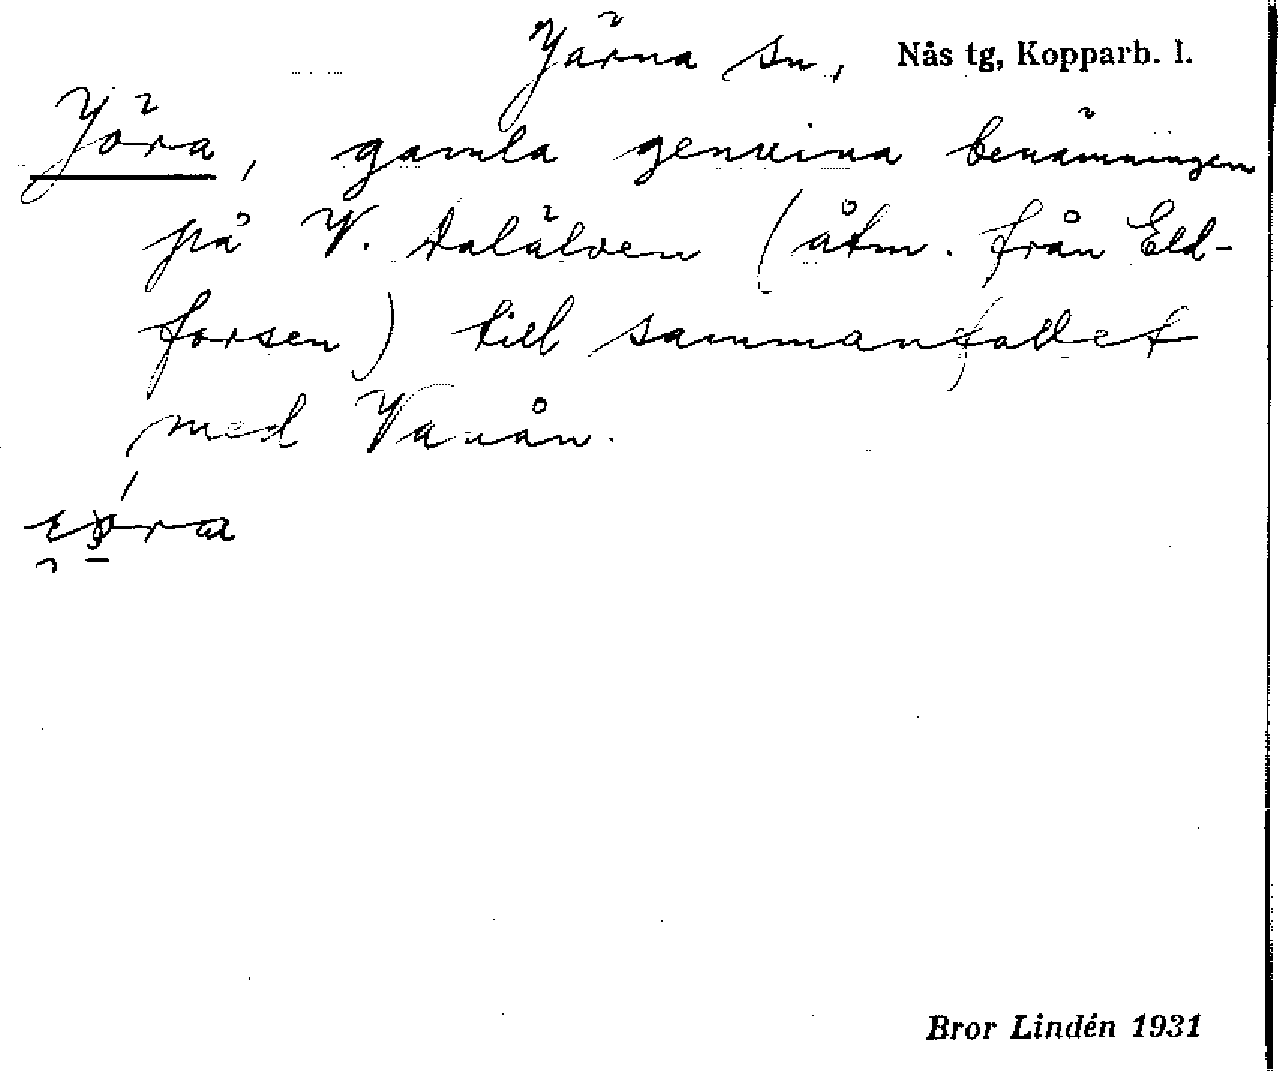 Järna sn, Nås tg, Kopparb. l.
Jöra, gamla genuina benämningen
på V. Dalälven (åtm. från Eld-
forsen) till sammanfallet
med Vanån.
Bror Lindén 1931